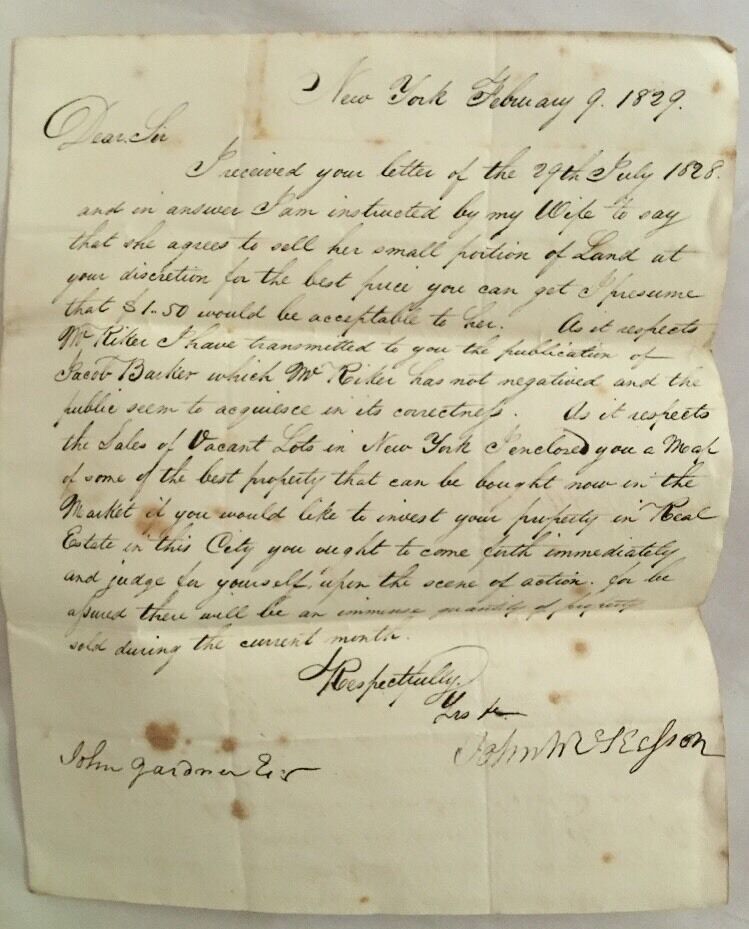 New York February 9. 1829.
Dear Sir
I received your letter of the 29th July 1828.
and in answer I am instructed by my Wife to say
that she agrees to sell her small portion of Land at
your discretion for the best price you can get I presume
that $1.50 would be acceptable to her. As it respects
Mr Riker I have transmitted to you the publication of
Jacob Barker which Mr Riker has not negatived and the
public seem to acquiesce in its correctness. As it respects
the Sales of Vacant Lots in New York I enclosed you a Map
of some of the best property that can be bought now in the
Market if you would like to invest your property in Real
Estate in this City you ought to come forth immediately
and judge for yourself upon the scene of action. for be
assured there will be an immense quantity of property
sold during the current month.
Respectfully
Yrs &c
John McKesson
John Gardner Esqr